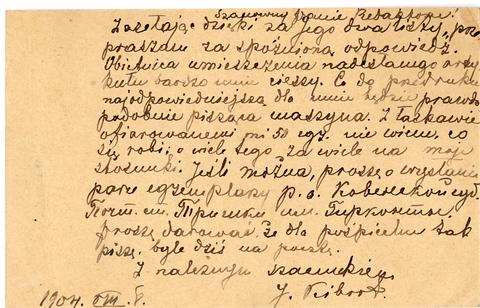 Szanowny Panie Redaktorze!
Zasełając dzięki za Jego dwa listy, prze-
praszam za spóźnioną odpowiedź.
Obietnica umieszczenia nadesłanego arty-
kułu bardzo mnie cieszy. Co do przedruku
najodpowiedniejszą dla mnie będzie prawdo-
podobnie pisząca maszyna. Z łaskawie
ofiarowanemi mi 50 egz. nie wiem, co
się robi; o wiele tego za wiele na moje
stosunki. Jeśli można, proszę o wysłanie
parę egzemplarzy p. a. Ковенской губ.
Почт. ст. Тришки им. Гирконты.
Proszę darować że dla pośpiechu tak
piszę, byle dziś na pocztę.
Z należnym szacunkiem
1904. VIII. 5. J.